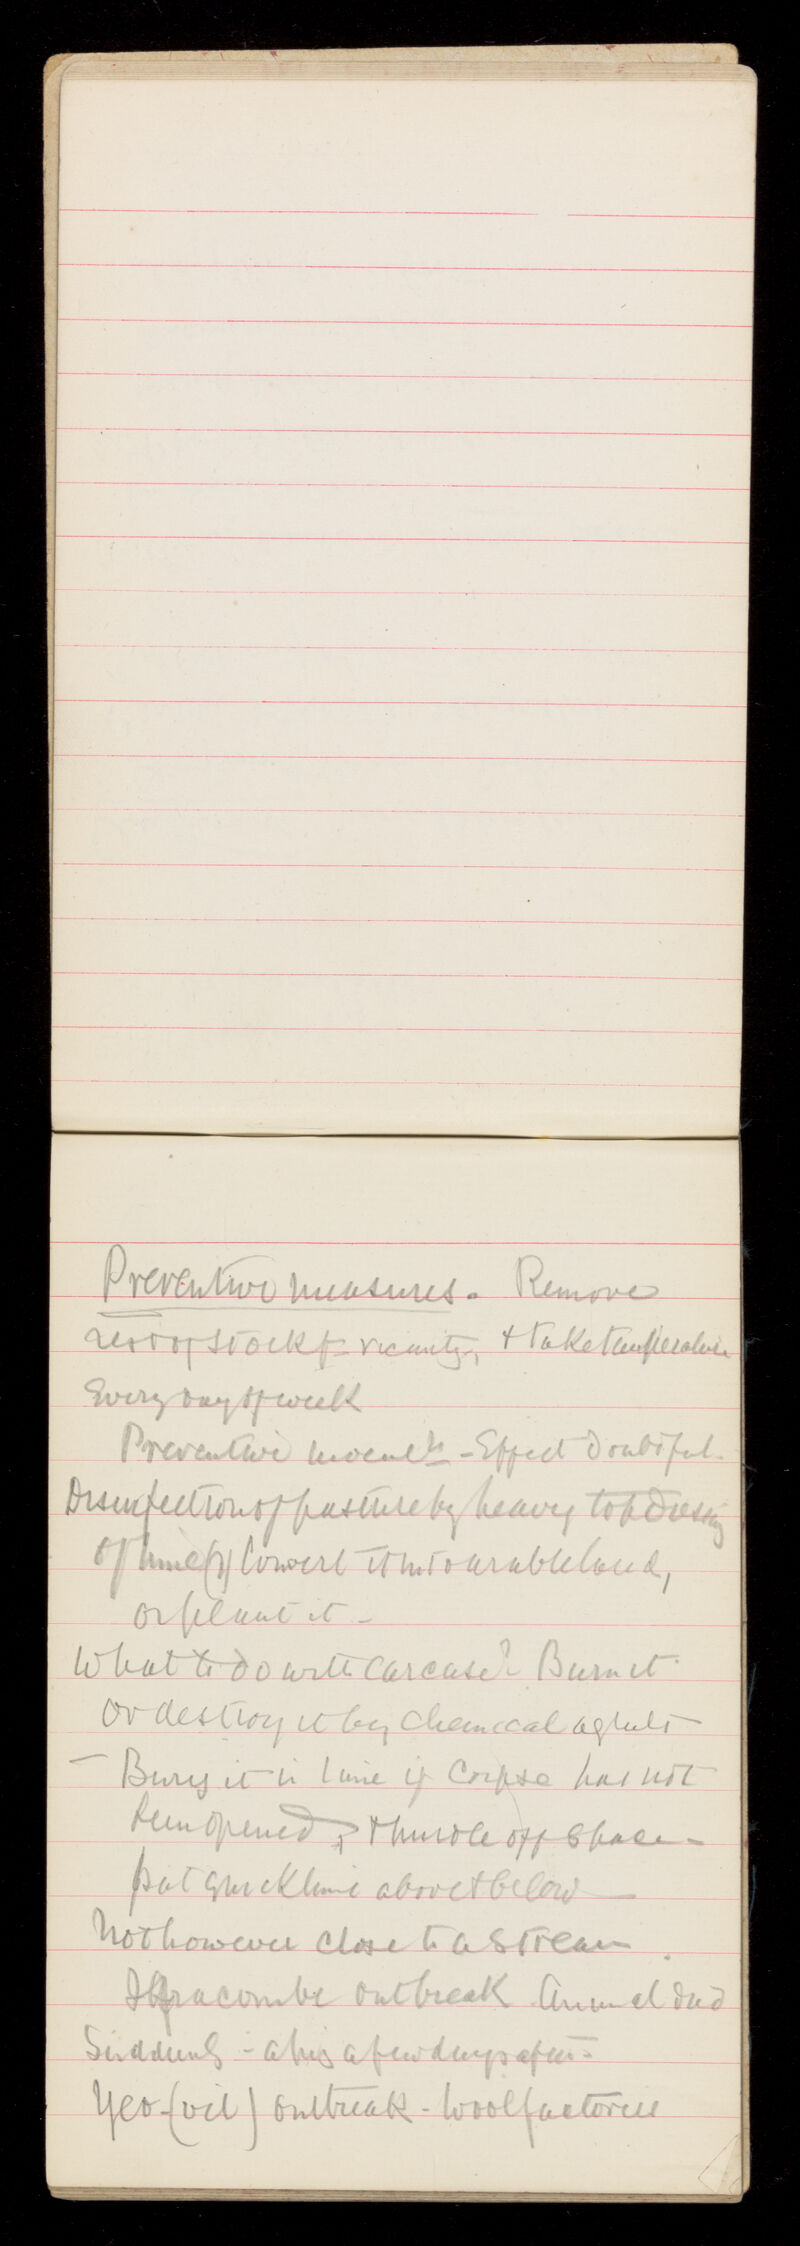 Preventive measures. Remove
rest of stock fr vicinity, & take temperature
Every day of week
Preventive inocul - Effect doubtful.
Disinfection of pasture by heavy top dressing
of lime (2) Convert it into arable land,
or plant it -
What to do with carcase? Burn it
or destroy it by chemical agents
- Bury it in lime if corpse has not
been opened, & hurdle off space -
put quicklime above & below -
Not however close to a stream.
Ilfracombe outbreak Animal died
Suddenly - a pig a few days after -
Yeo-(vil) outbreak - Wool factories